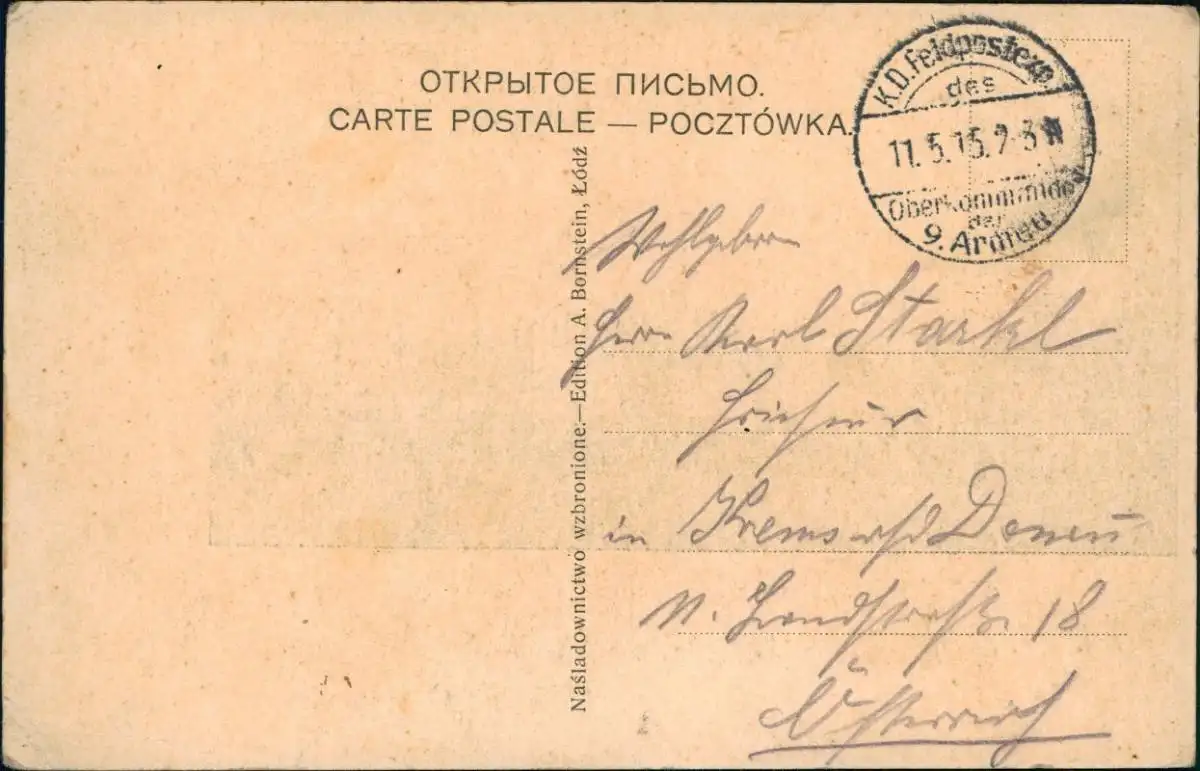 ОТКРЫТОЕ ПИСЬМО.
CARTE POSTALE — POCZTÓWKA.
K.D. Feldpostexp.
des
11.5.15. 2-3 N
Oberkommandos
der
9. Armee
Naśladownictwo wzbronione.—Edition A. Bornstein, Łódź
Wohlgeboren
Herrn Karl Starkl
Friseur
in Krems a/d Donau
Landstraße 18
Österreich